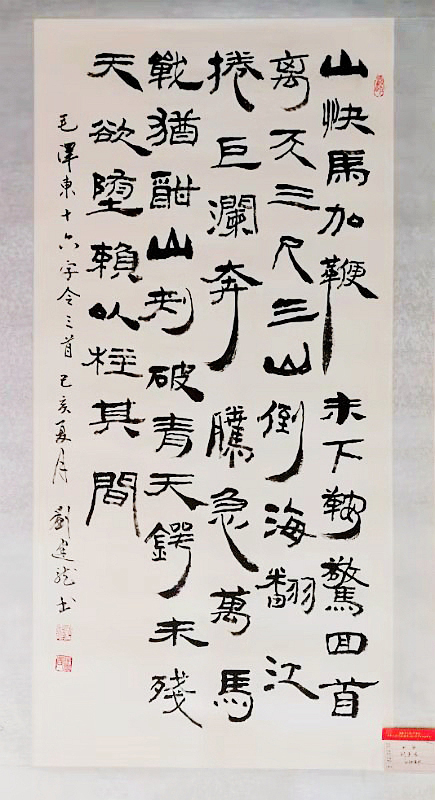 山快馬加鞭未下鞍驚回首
离天三尺三山倒海翻江
捲巨瀾奔騰急萬馬
戰猶酣山刺破青天鍔未殘
天欲墮賴以柱其間
毛澤東十六字令三首己亥夏月劉建龍书